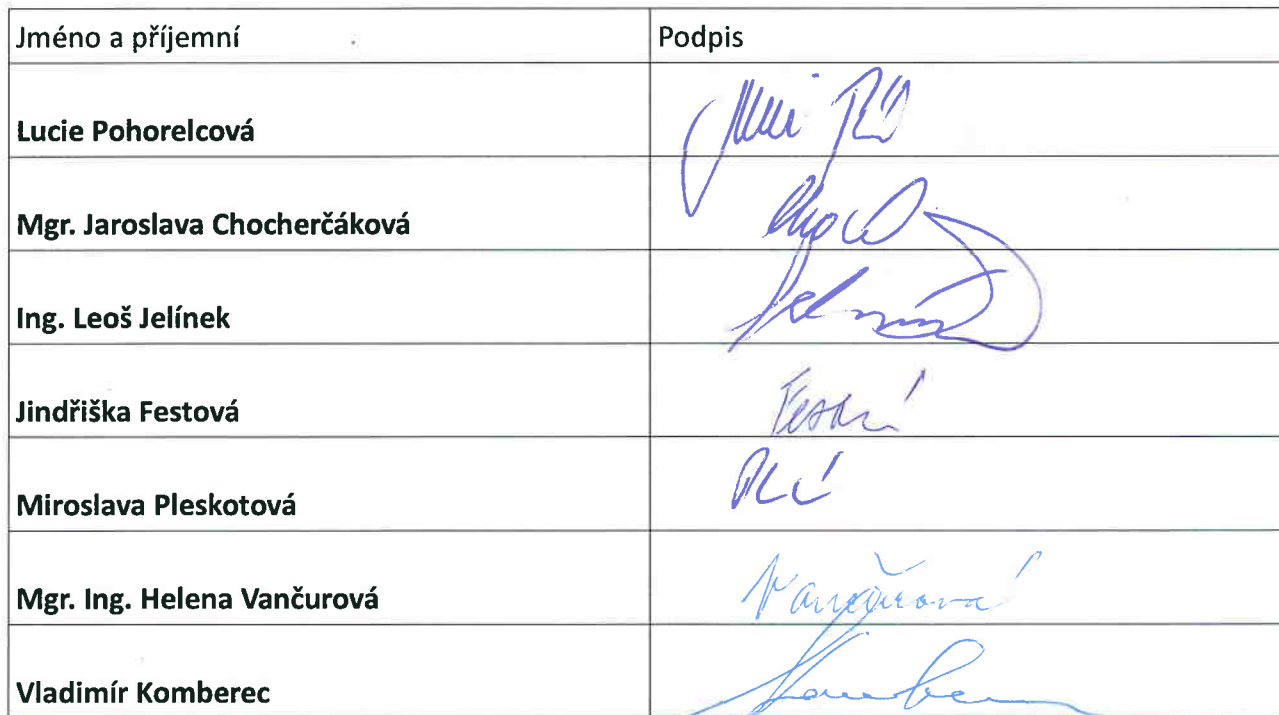 Jméno a příjemní Podpis
Lucie Pohorelcová
Mgr. Jaroslava Chocherčáková
Ing. Leoš Jelínek
Jindřiška Festová
Miroslava Pleskotová
Mgr. Ing. Helena Vančurová Vančurová
Vladimír Komberec